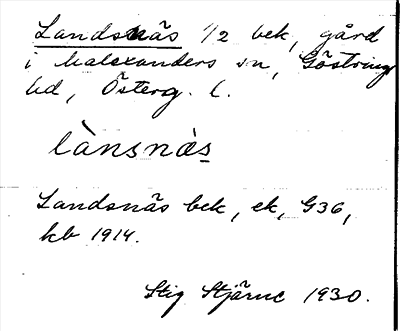 Landsnäs 1/2 bek, gård
i Malexanders sn, Göstrings
hd, Österg. l.
lànsnàs
Landsnäs bek, ek, G36,
kb 1914.
Stig Stjärne 1930.